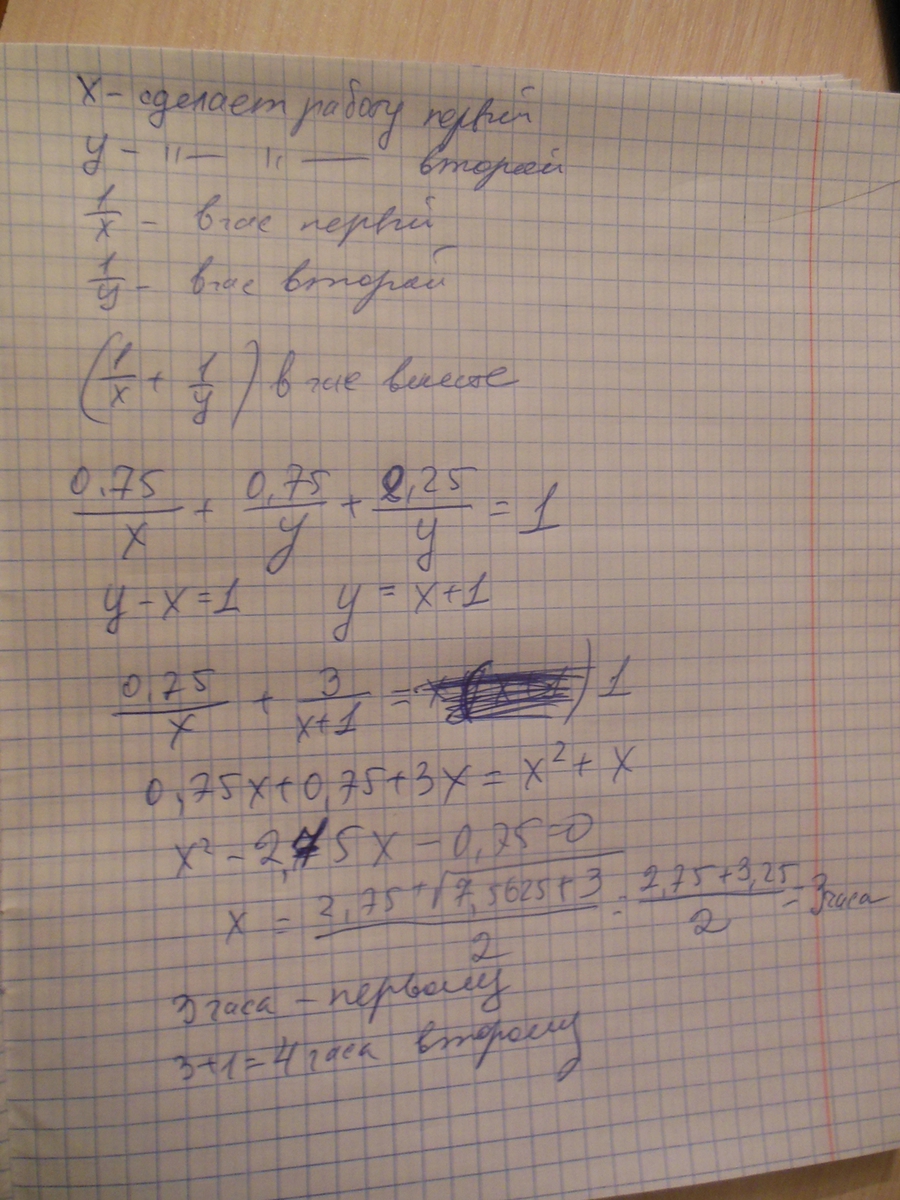 x - сделает работу первый
y - "— "— второй
1/x - в час первый
1/y - в час второй
(1/x + 1/y) в час вместе
0,75/x + 0,75/y + 2,25/y = 1
y - x = 1 y = x+1
0,75/x + 3/(x+1) = 1
0,75x + 0,75 + 3x = x² + x
x² - 2,75x - 0,75 = 0
x = (2,75 + √(7,5625 + 3))/2 = (2,75 + 3,25)/2 = 3 часа
3 часа - первому
3+1=4 часа второму